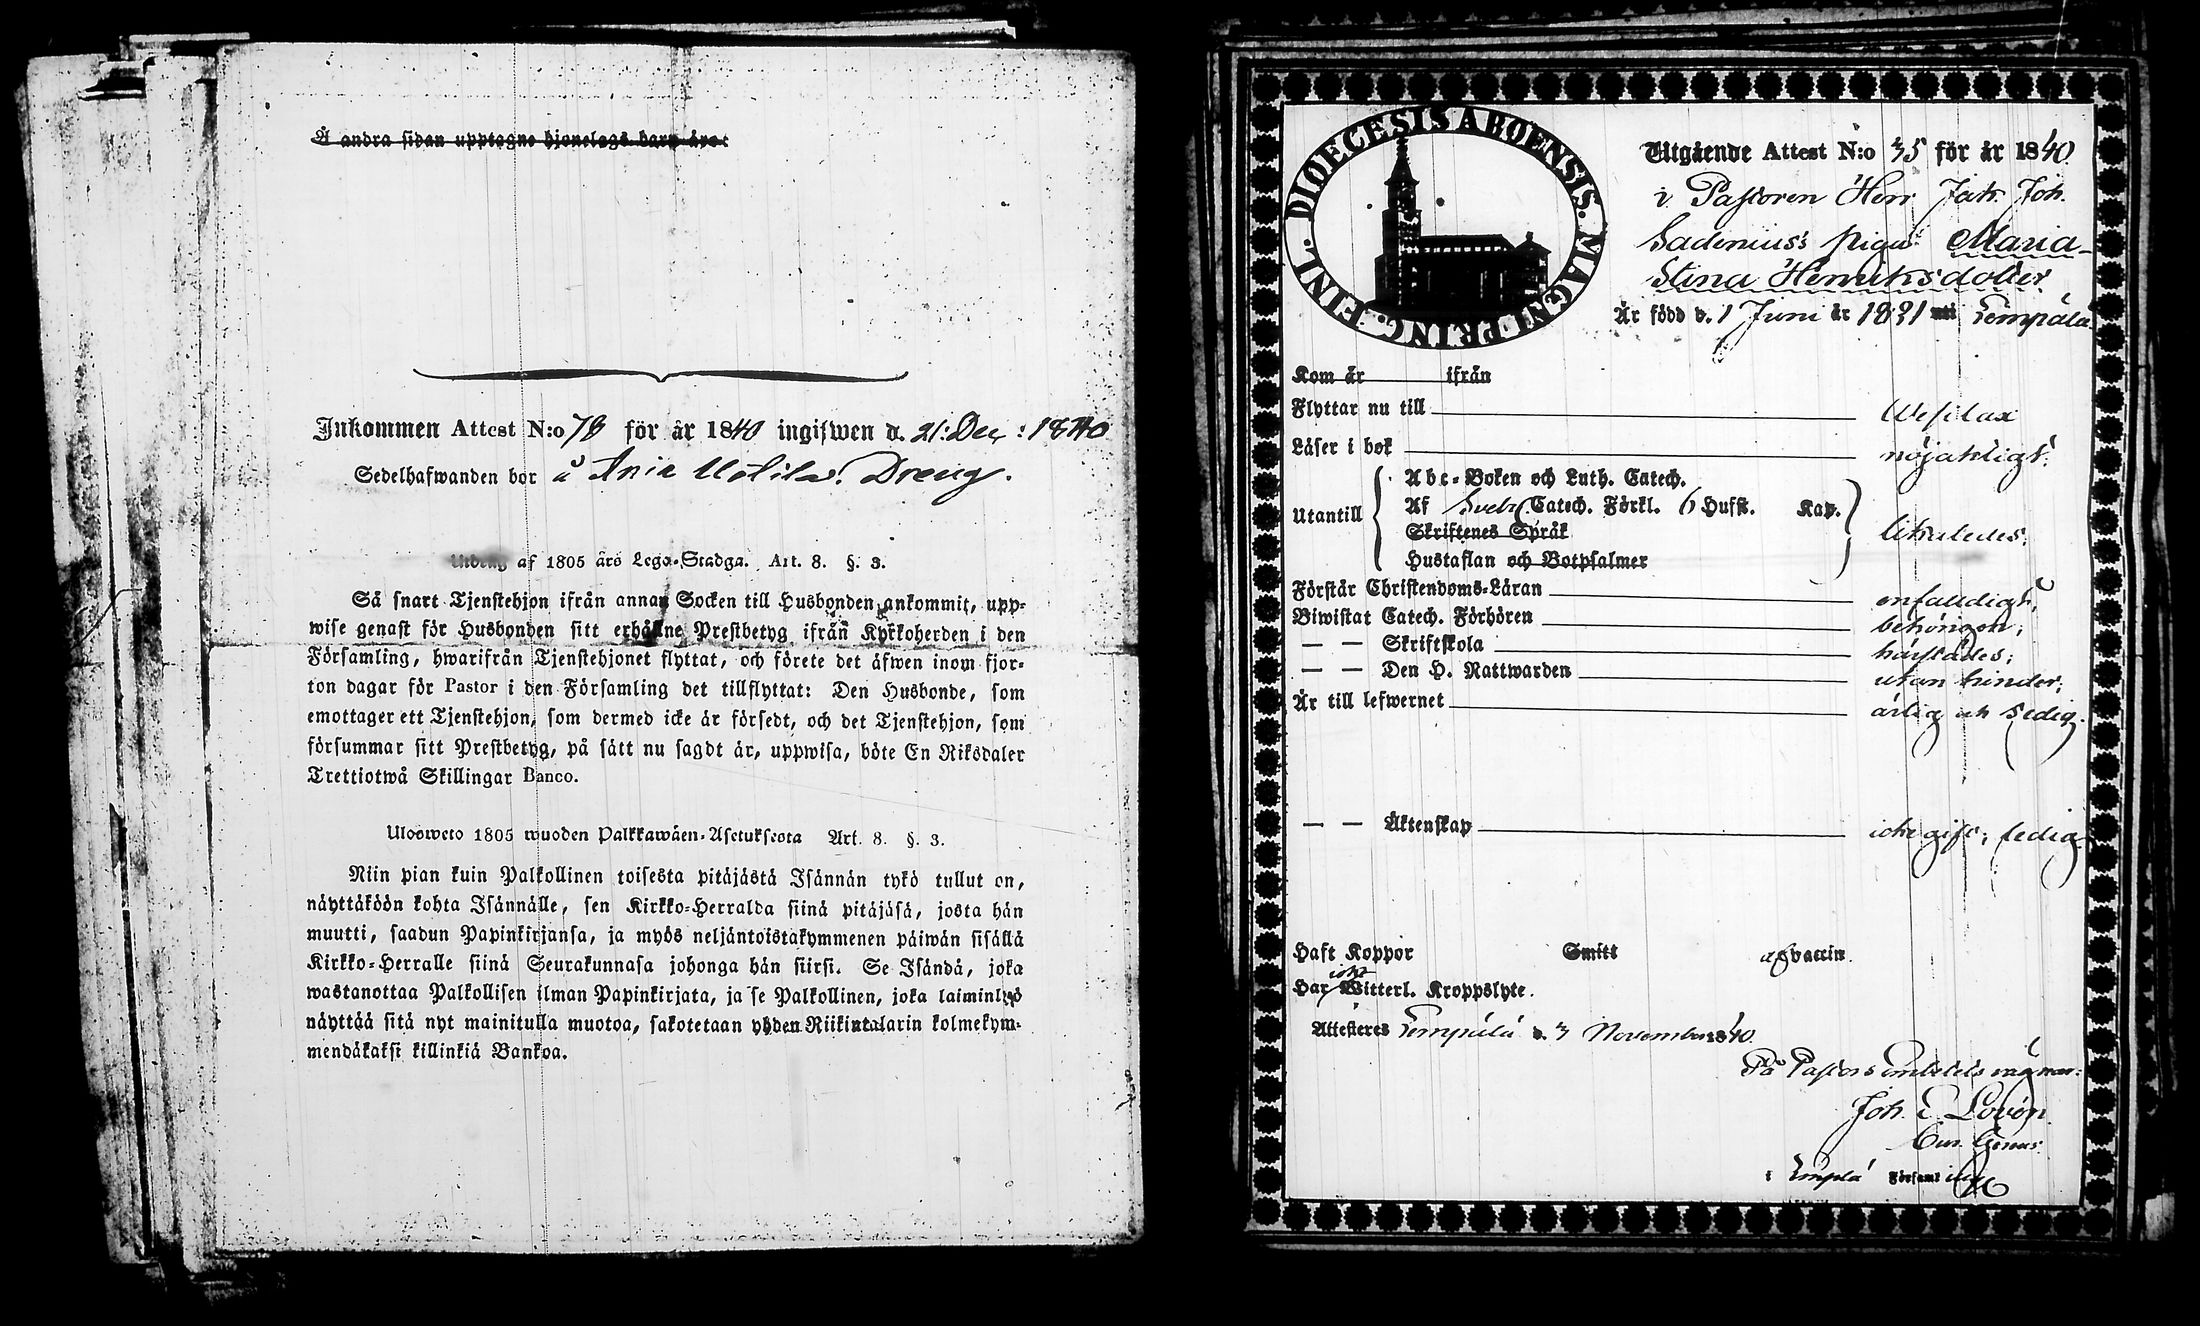 Å andra sidan upptagne hjonelags barn äro:
Inkommen Attest N:o 78 för år 1840 ingifwen d. 21: Dec: 1840
Sedelhafwanden bor å Dreng.
Utdrag af 1805 års Lego-Stadga. Art. 8. §. 3.
Så snart Tjenstehjon ifrån annan Socken till Husbonden ankommit, upp-
wise genast för Husbonden sitt erhållne Prestbetyg ifrån Kyrkoherden i den
Församling, hwarifrån Tjenstehjonet flyttat, och förete det äfwen inom fjor-
ton dagar för Pastor i den Församling det tillflyttat: Den Husbonde, som
emottager ett Tjenstehjon, som dermed icke är försedt, och det Tjenstehjon, som
försummar sitt Prestbetyg, på sätt nu sagdt är, uppwisa, böte En Riksdaler
Trettiotwå Skillingar Banco.
Ulosweto 1805 wuoden Palkkawäen-Asetuksesta Art. 8. §. 3.
Niin pian kuin Palkollinen toisesta pitäjästä Isännän tykö tullut on,
näyttäköön kohta Isännälle, sen Kirkko-Herralda siinä pitäjäsä, josta hän
muutti, saadun Papinkirjansa, ja myös neljäntoistakymmenen päiwän sisällä
Kirkko-Herralle siinä Seurakunnasa johonga hän siirsi. Se Isändä, joka
wastanottaa Palkollisen ilman Papinkirjata, ja se Palkollinen, joka laiminlyö
näyttää sitä nyt mainitulla muotoa, sakotetaan yhden Riikintalarin kolmekym-
mendäkaksi killinkiä Bankoa.
DIOECESIS ABOENSIS. MAGNI PRINC. FINL.
Utgående Attest N:o 35 för år 1840.
Pastoren Herr Jak. Joh.
Sadenius's pigan Maria
Stina Henriksdotter
Är född d. 1 Juni år 1821 uti Lempälä
Kom år ifrån
Flyttar nu till Wesilax
Läser i bok nöjaktligt;
Utantill
Abc-Boken och Luth. Catech.
Af Sveb. Catech. Förkl. 6 Hufst. Kap.
Skriftenes Språk
Hustaflan och Botpsalmer
likaledes;
Förstår Christendoms-Läran enfaldigt;
Biwistat Catech. Förhören behörigen;
— — Skriftskola härstädes;
— — Den H. Nattwarden utan hinder;
Är till lefwernet ärlig och sedig.
— — Äktenskap icke gift; ledig
Haft Koppor Smitt af vaccin.
Har icke Witterl. Kroppslyte.
Attesteres Lempälä d. 3 November 1840.
På Pastors Embetets vägnar:
Joh. E. Lovén.
i Lempälä Församl